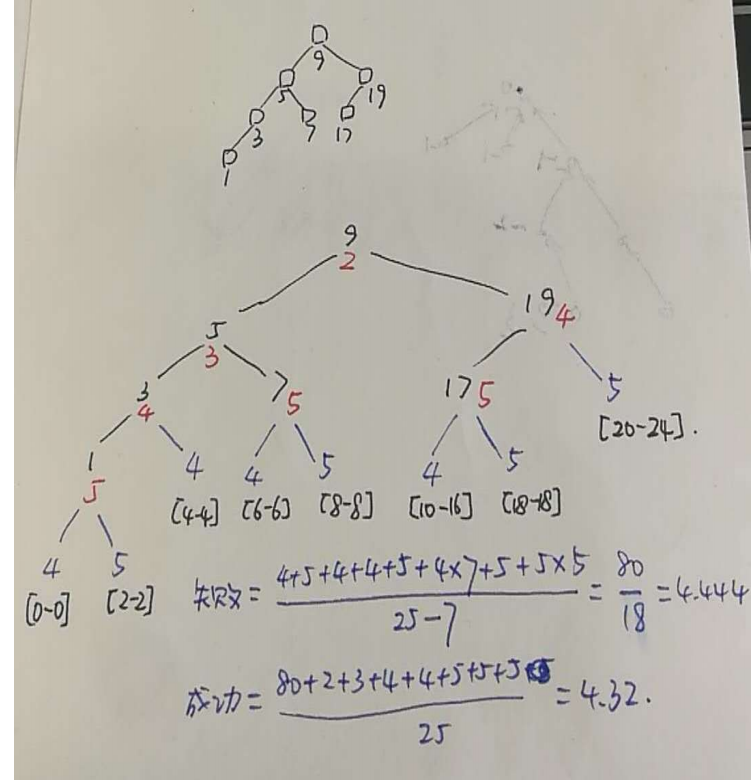 9
5 19
3 7 17
1
9
2
5 19 4
3
3 7 5 17 5 5
4 [20-24].
1 4 4 5 4 5
5 [4-4] [6-6] [8-8] [10-16] [18-18]
4 5
[0-0] [2-2]
失败 = 4+5+4+4+5+4×7+5+5×5 / 25-7 = 80/18 = 4.444
成功 = 80+2+3+4+4+5+5+5 / 25 = 4.32.